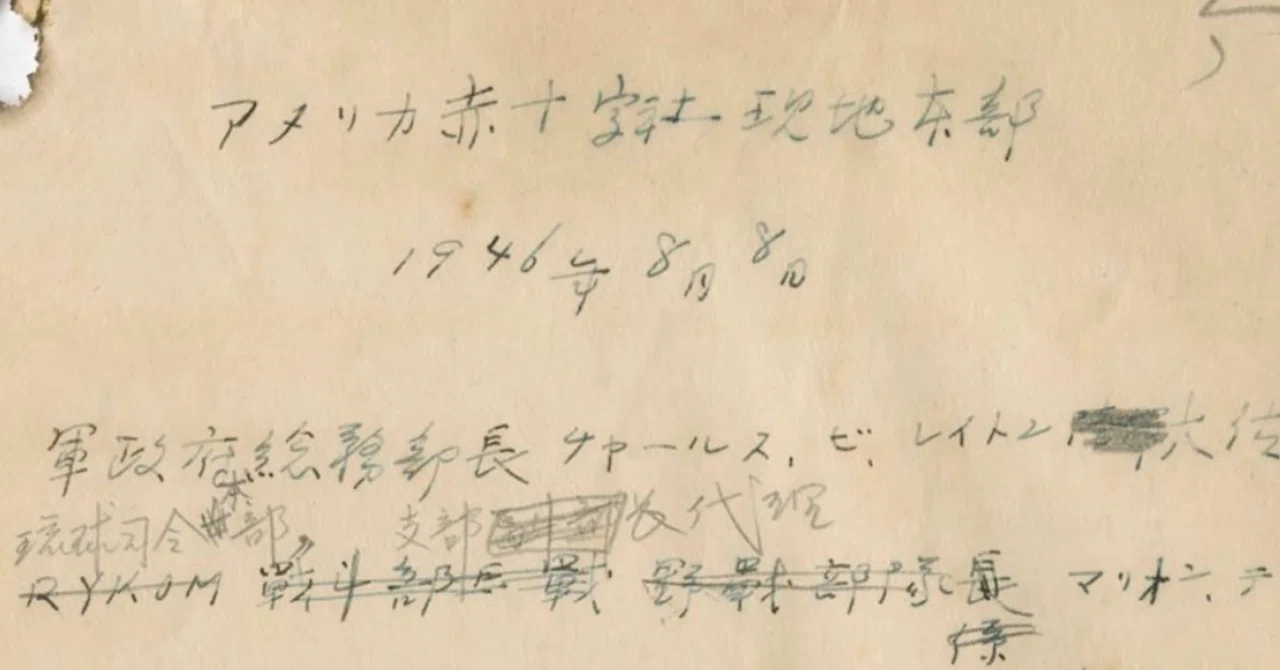 アメリカ赤十字社現地本部
1946年8月8日
軍政府総務部長 チャールス、ビ、レイトン 大佐
琉球司令本部 支部 長代理
RYKOM 戦斗部長 戰 野戰部隊長 マリオン、テ
係